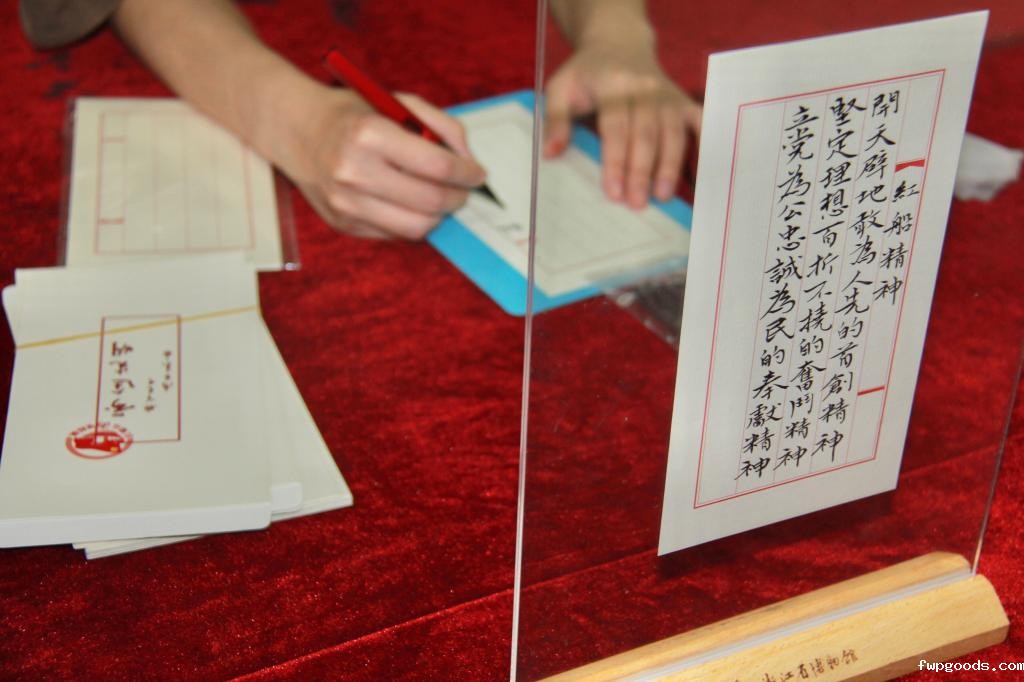 紅船精神
開天辟地敢為人先的首創精神
堅定理想百折不撓的奮鬥精神
立党為公忠誠為民的奉獻精神
江省博物館
fwpgoods.com